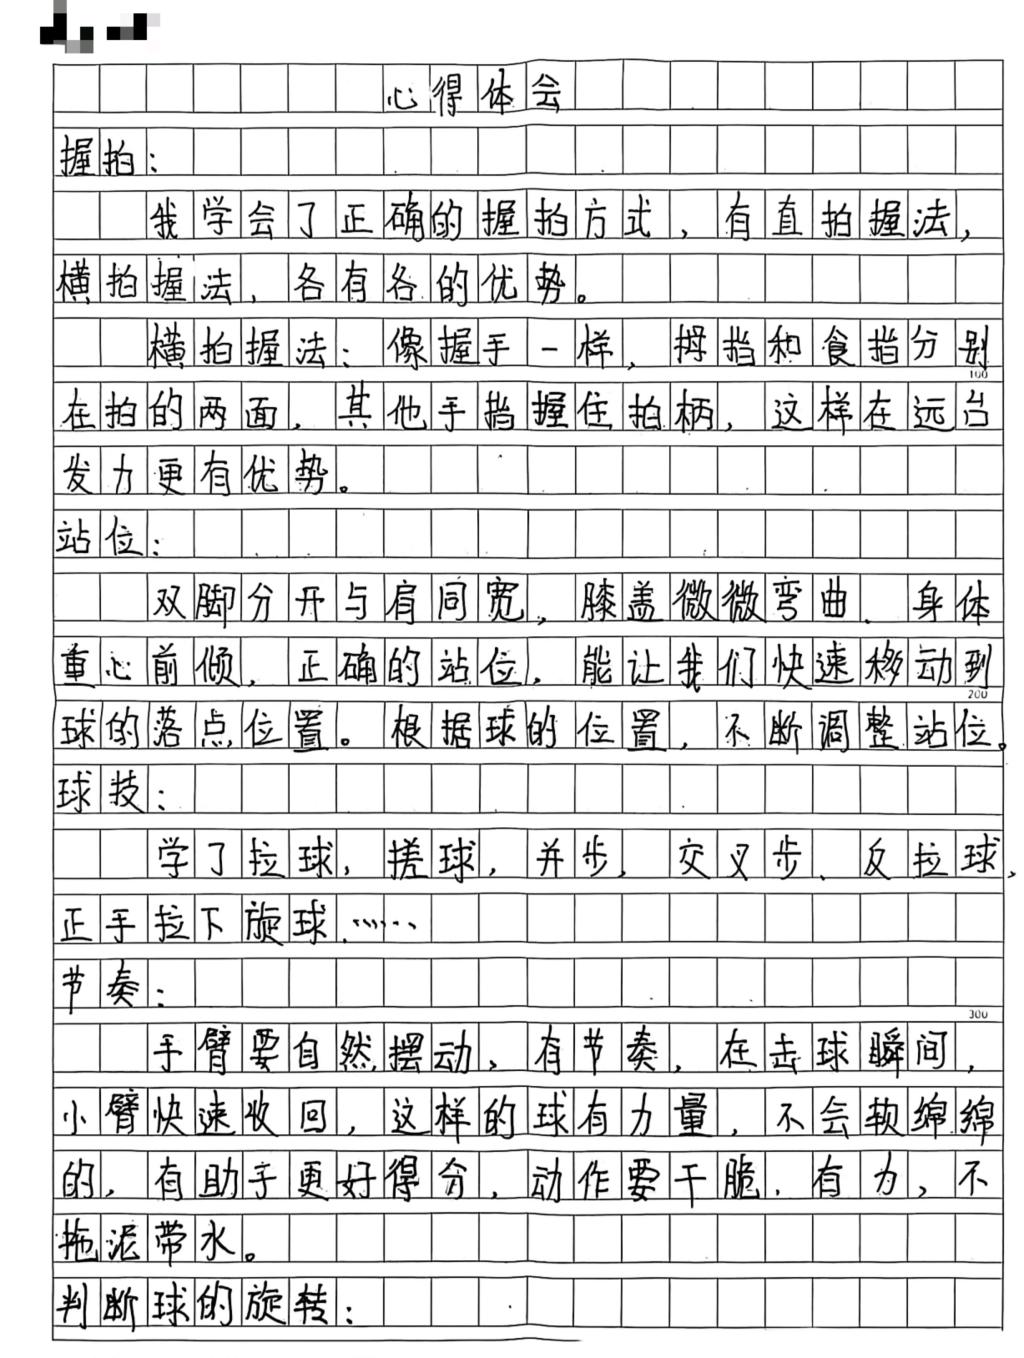 心得体会
握拍：
我学会了正确的握拍方式，有直拍握法，
横拍握法，各有各的优势。
横拍握法：像握手一样，拇指和食指分别
100
在拍的两面，其他手指握住拍柄，这样在远台
发力更有优势。
站位：
双脚分开与肩同宽，膝盖微微弯曲、身体
重心前倾，正确的站位，能让我们快速移动到
200
球的落点位置。根据球的位置，不断调整站位。
球技：
学了拉球，搓球，并步，交叉步、反拉球，
正手拉下旋球……
节奏：
300
手臂要自然摆动、有节奏，在击球瞬间，
小臂快速收回，这样的球有力量，不会软绵绵
的，有助于更好得分，动作要干脆、有力，不
拖泥带水。
判断球的旋转：